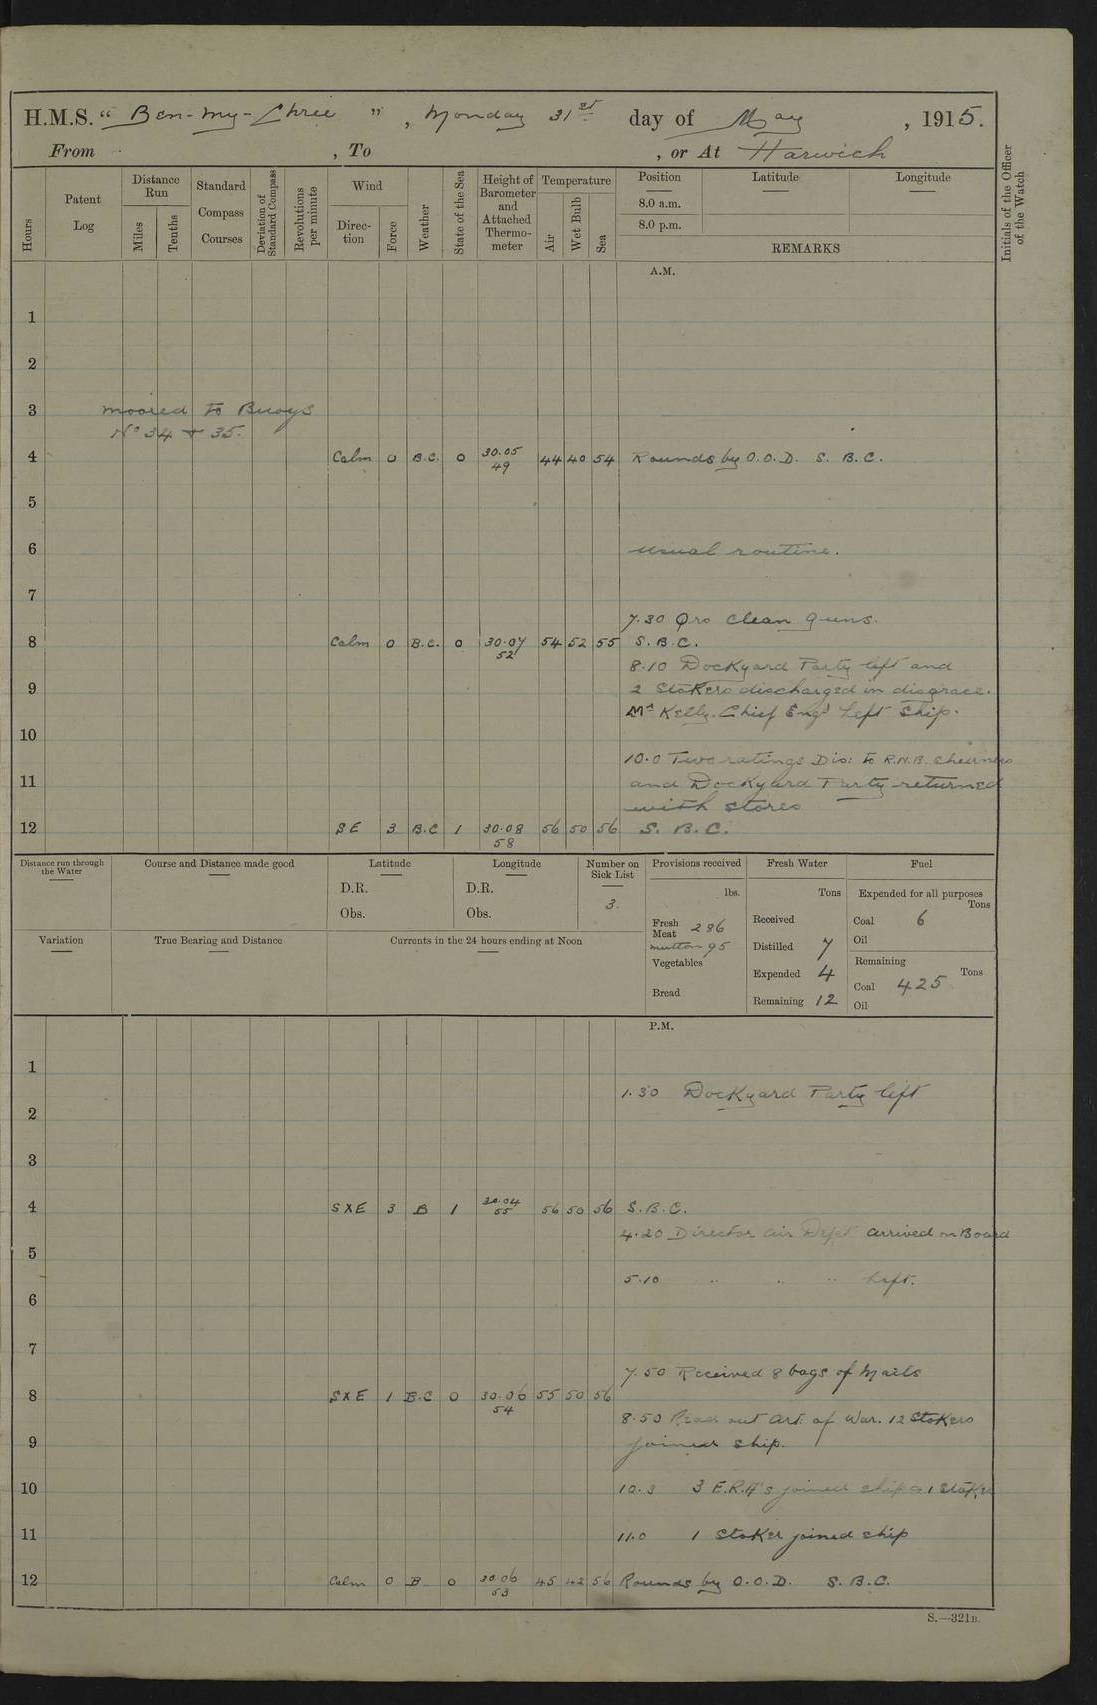 H.M.S. " Ben-my-Chree ", Monday 31st day of May, 1915.
From , To , or At Harwich
Hours
Patent Log
Distance Run
Miles
Tenths
Standard Compass Courses
Deviation of Standard Compass
Revolutions per minute
Wind
Direction
Force
Weather
State of the Sea
Height of Barometer and Attached Thermometer
Temperature
Air
Wet Bulb
Sea
Position
Latitude
Longitude
8.0 a.m.
8.0 p.m.
REMARKS
Initials of the Officer of the Watch
A.M.
1
2
3 moored to Buoys
No 34 + 35.
4 Calm 0 B.C. 0 30.05 44 40 54 Rounds by O.O.D. S. B. C.
49
5
6 usual routine.
7
7.30 Qrs clean guns.
8 Calm 0 B.C. 0 30.07 54 52 55 S. B. C.
52
8.10 Dockyard Party left and
9 2 Stokers discharged in disgrace.
Mr Kelly. Chief Engr left ship.
10
10.0 Two ratings Dis: to R.N.B. Sheerness
11 and Dockyard Party returned
with stores
12 SE 3 B.C 1 30.08 56 50 56 S. B. C.
58
Distance run through the Water
Course and Distance made good
Latitude
D.R.
Obs.
Longitude
D.R.
Obs.
Number on Sick List
3.
Provisions received
lbs.
Fresh Meat 286
mutton 95
Vegetables
Bread
Fresh Water
Tons
Received
Distilled 7
Expended 4
Remaining 12
Fuel
Expended for all purposes
Tons
Coal 6
Oil
Remaining
Tons
Coal 425
Oil
Variation
True Bearing and Distance
Currents in the 24 hours ending at Noon
P.M.
1
1.30 Dockyard Party left
2
3
4 SXE 3 B 1 30.04 56 50 56 S. B. C.
55
4.20 Director Air Dept arrived on Board
5
5.10 " " " left.
6
7
7.50 Received 8 bags of Mails
8 SXE 1 B.C 0 30.06 55 50 56
54
8.50 Read out Art: of War. 12 Stokers
9 joined ship.
10 10.3 3 E.R.A's joined ship & 1 Stoker
11 11.0 1 Stoker joined ship
12 Calm 0 B 0 30.06 45 42 56 Rounds by O.O.D. S. B. C.
53
S.—321B.